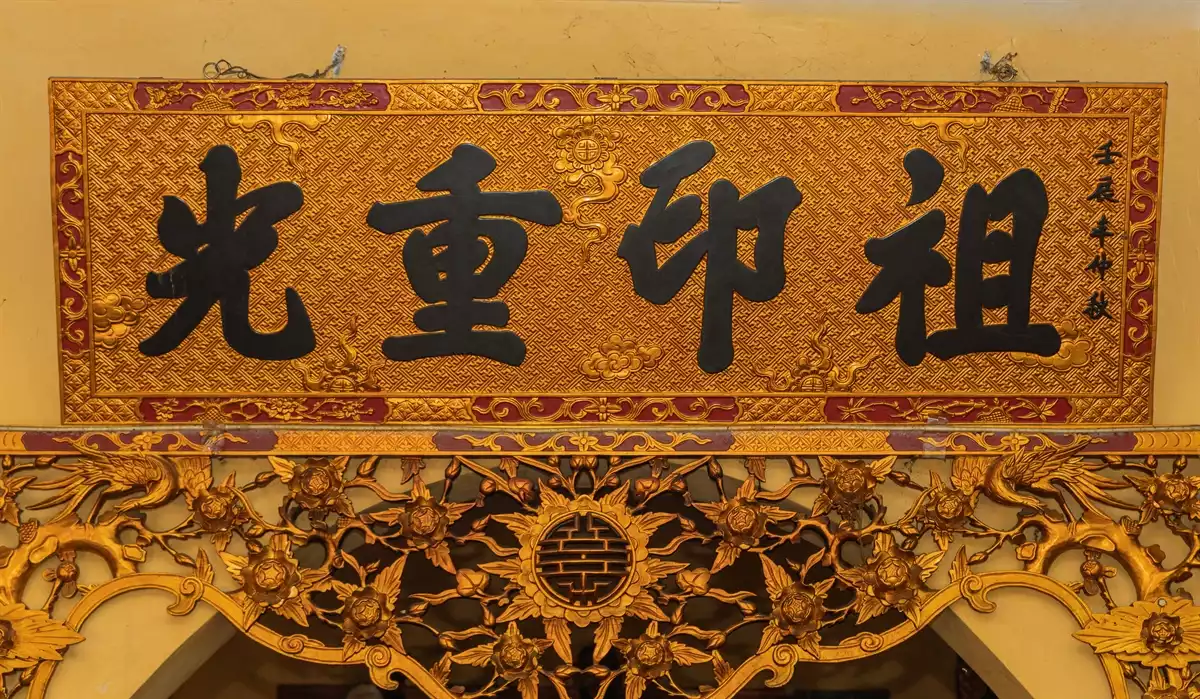 壬辰年仲秋
祖印重光